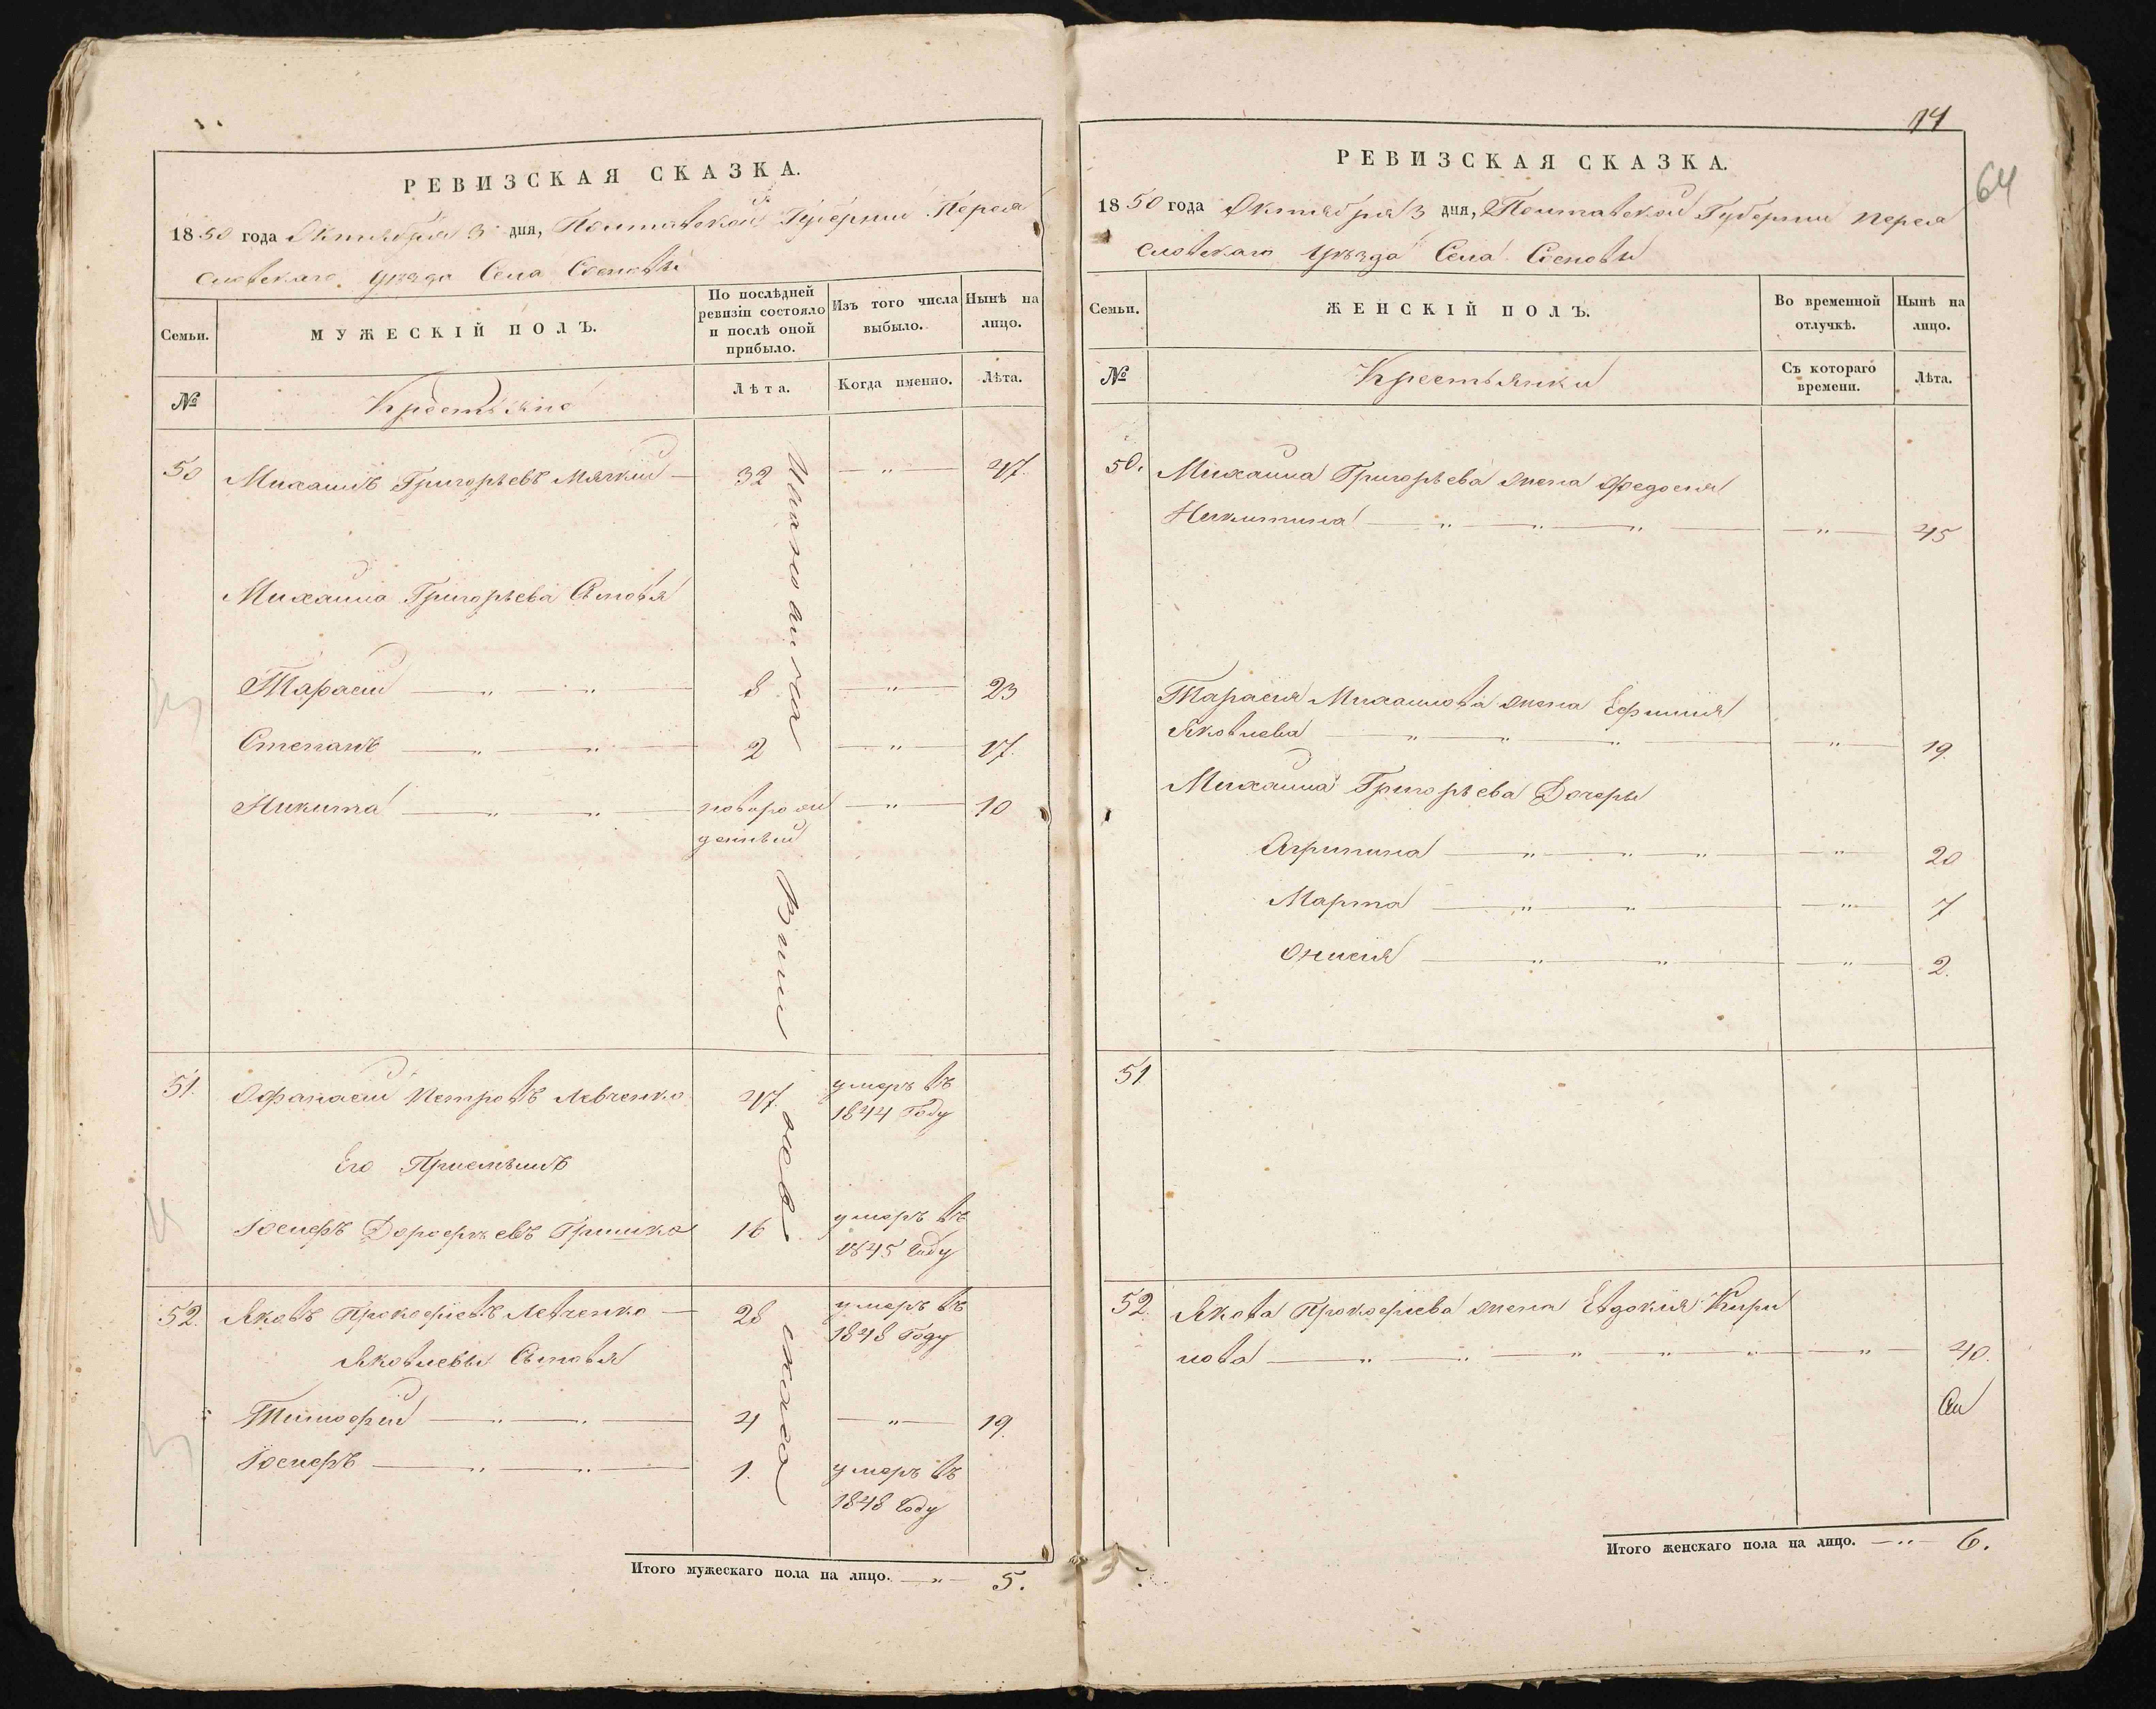 РЕВИЗСКАЯ СКАЗКА.
1850 года Октября 3 дня, Полтавской Губернии Перея
славскаго уезда Села Сосновы
Семьи.
МУЖЕСКІЙ ПОЛЪ.
По послѣдней ревизіи состояло и послѣ оной прибыло.
Изъ того числа выбыло.
Нынѣ на лицо.
№
Крестьяне
Лѣта.
Когда именно.
Лѣта.
50 Михаилъ Григорьевъ Мягкий — 32 — " — 47.
Михаила Григорьева Сыновья
Тарасий — " — " — 8 — " — 23
Степанъ — " — " — 2 — " — 17.
Никита — " — " — новорож — " — 10
денный
51. Офанасий Петровъ Левченко 47. умеръ въ
1844 Году
Его Приемышъ
Іосифъ Дорофѣевъ Гришко 16 умеръ въ
1845 Году
52. Яковъ Прокофіевъ Левченко — 28 умеръ въ
1848 Году
Яковлевы Сыновья
Тимофий — " — " — 4 — " — 19.
Іосифъ — " — " — 1. умеръ въ
1848 Году
Итого мужескаго пола на лицо. — " — 5.
14
64
РЕВИЗСКАЯ СКАЗКА.
1850 года Октября 3 дня, Полтавской Губернии Перея
славскаго уѣзда Села Сосновы
Семьи.
ЖЕНСКІЙ ПОЛЪ.
Во временной отлучкѣ.
Нынѣ на лицо.
№
Крестьянки
Съ котораго времени.
Лѣта.
50. Михаила Григорьева жена Федосия
Никитина — " — " — " — " — 45
Тарасия Михаилова жена Ефимия
Яковлева — " — " — " — " — 19.
Михаила Григорьева Дочеры
Агрипина — " — " — " — " — 20
Марта — " — " — " — 7
Онисия — " — " — " — 2.
51
52. Якова Прокофиева жена Евдокия Кири
лова — " — " — " — " — " — " — 40.
Итого женскаго пола на лицо. — " — 6.